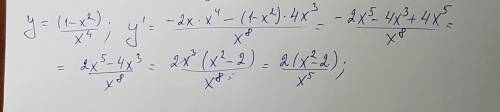 y = (1-x²)/x⁴ ; y' = (-2x·x⁴ - (1-x²)·4x³)/x⁸ = (-2x⁵ - 4x³ + 4x⁵)/x⁸ =
= (2x⁵ - 4x³)/x⁸ = 2x³(x² - 2)/x⁸ = 2(x² - 2)/x⁵ ;